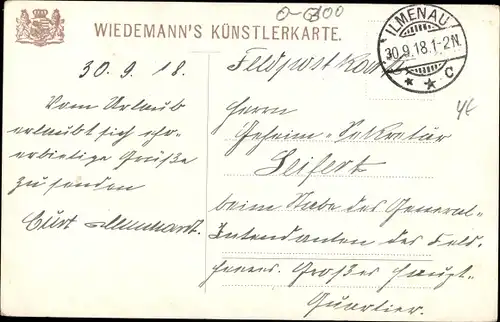 WIEDEMANN'S KÜNSTLERKARTE.
ILMENAU
30.9.18.1-2N.
* * C
30. 9. 18.
Vom Urlaub
erlaubt sich ehr-
erbietige Grüße
zu senden
Curt
Feldpostkarte
Herrn
Geheim-Sekretär
Seifert
beim Stabe des General-
Intendanten des Feld-
heeres. Großes Haupt-
Quartier.